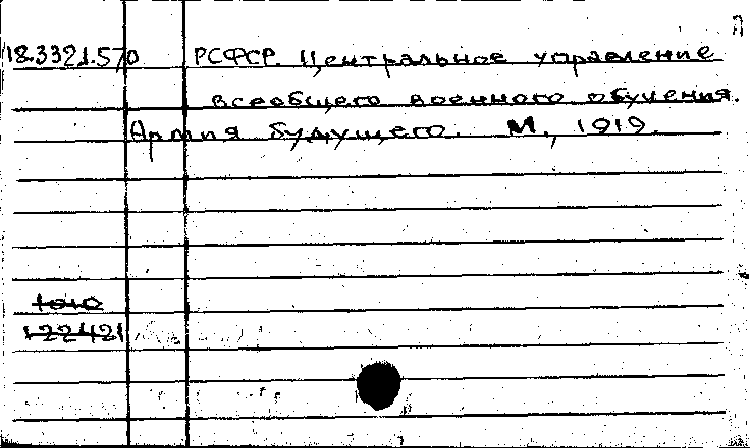 18.3321.570 РСФСР. Центральное управление
всеобщего военного обучения.
Армия будущего. М., 1919.
1010
122421